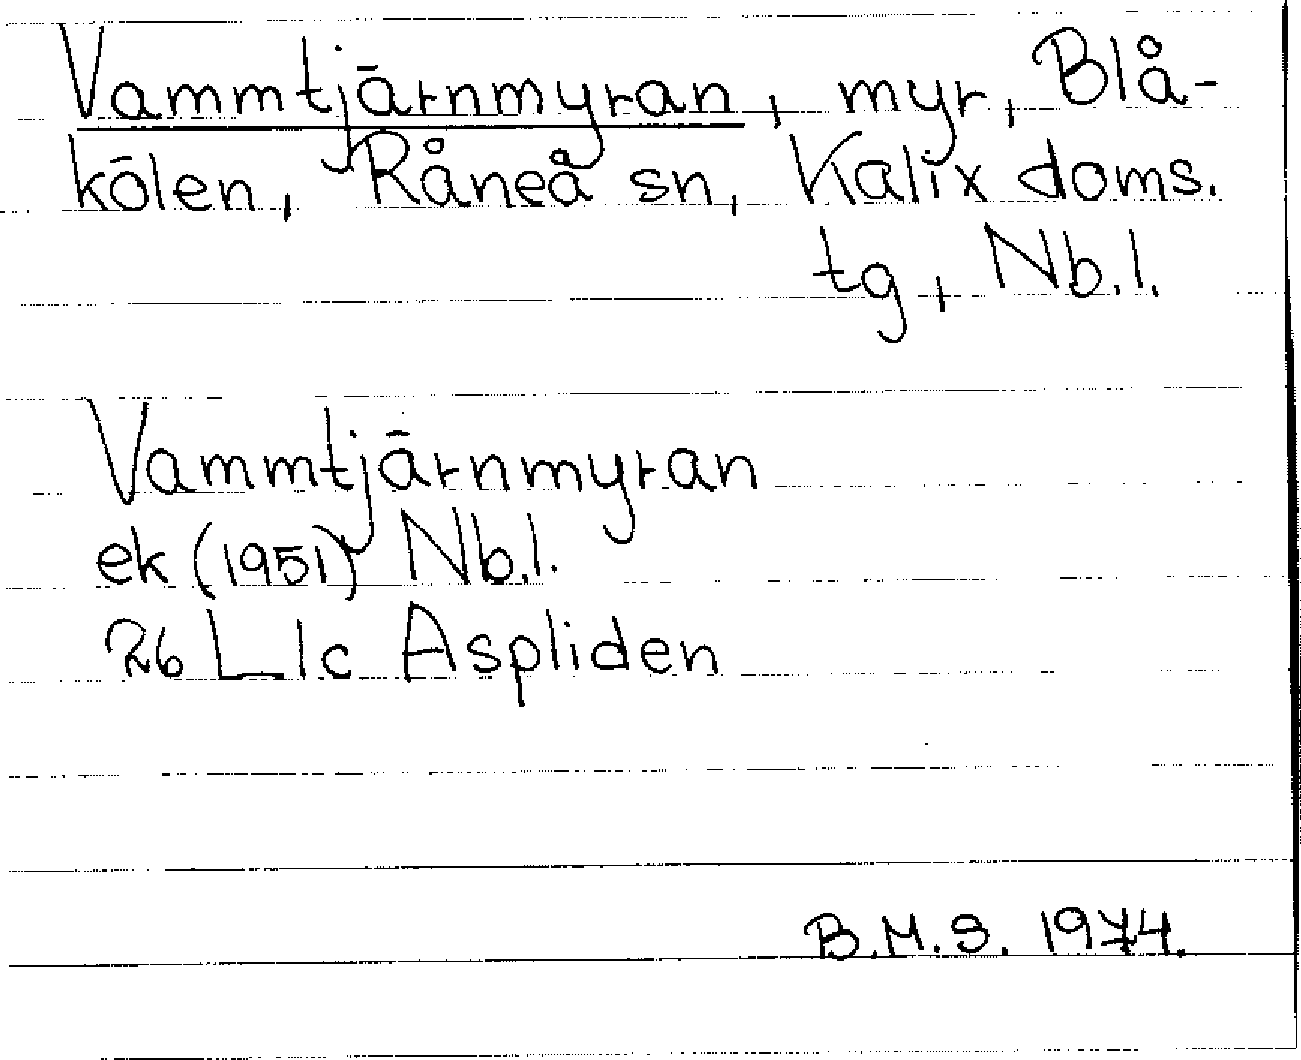 Vammtjärnmyran, myr, Blå-
kölen, Råneå sn, Kalix doms.
tg, Nb.l.
Vammtjärnmyran
ek (1951) Nb.l.
26 L 1c Aspliden
B.M.S. 1974.